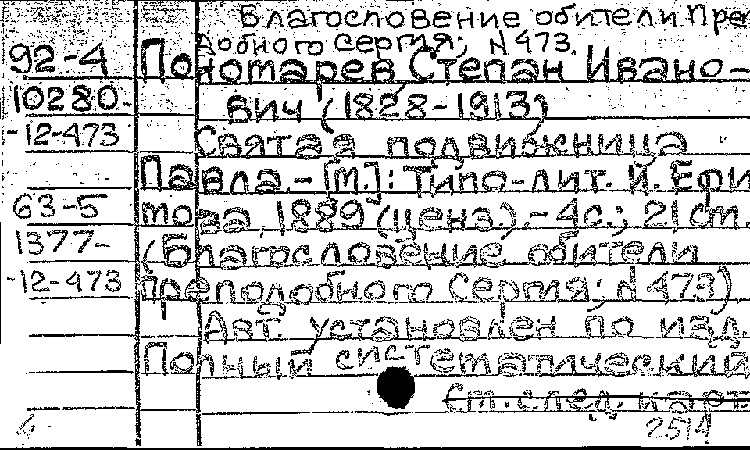 Благословение обители Пре
92-4
добного Сергия; N 473.
Пономарев, Степан Ивано-
10280-
вич (1828-1913)
-12-473
Святая подвижница
Павла. - [М.]: Типо-лит. И. Ефи
63-5
мова, 1889 (ценз.). - 4с.; 21 см.
1377-
(Благословение обители
-12-473
преподобного Сергия; N 473)
Авт. установлен по изд.
Полный систематический
См. след. карт
4
2514